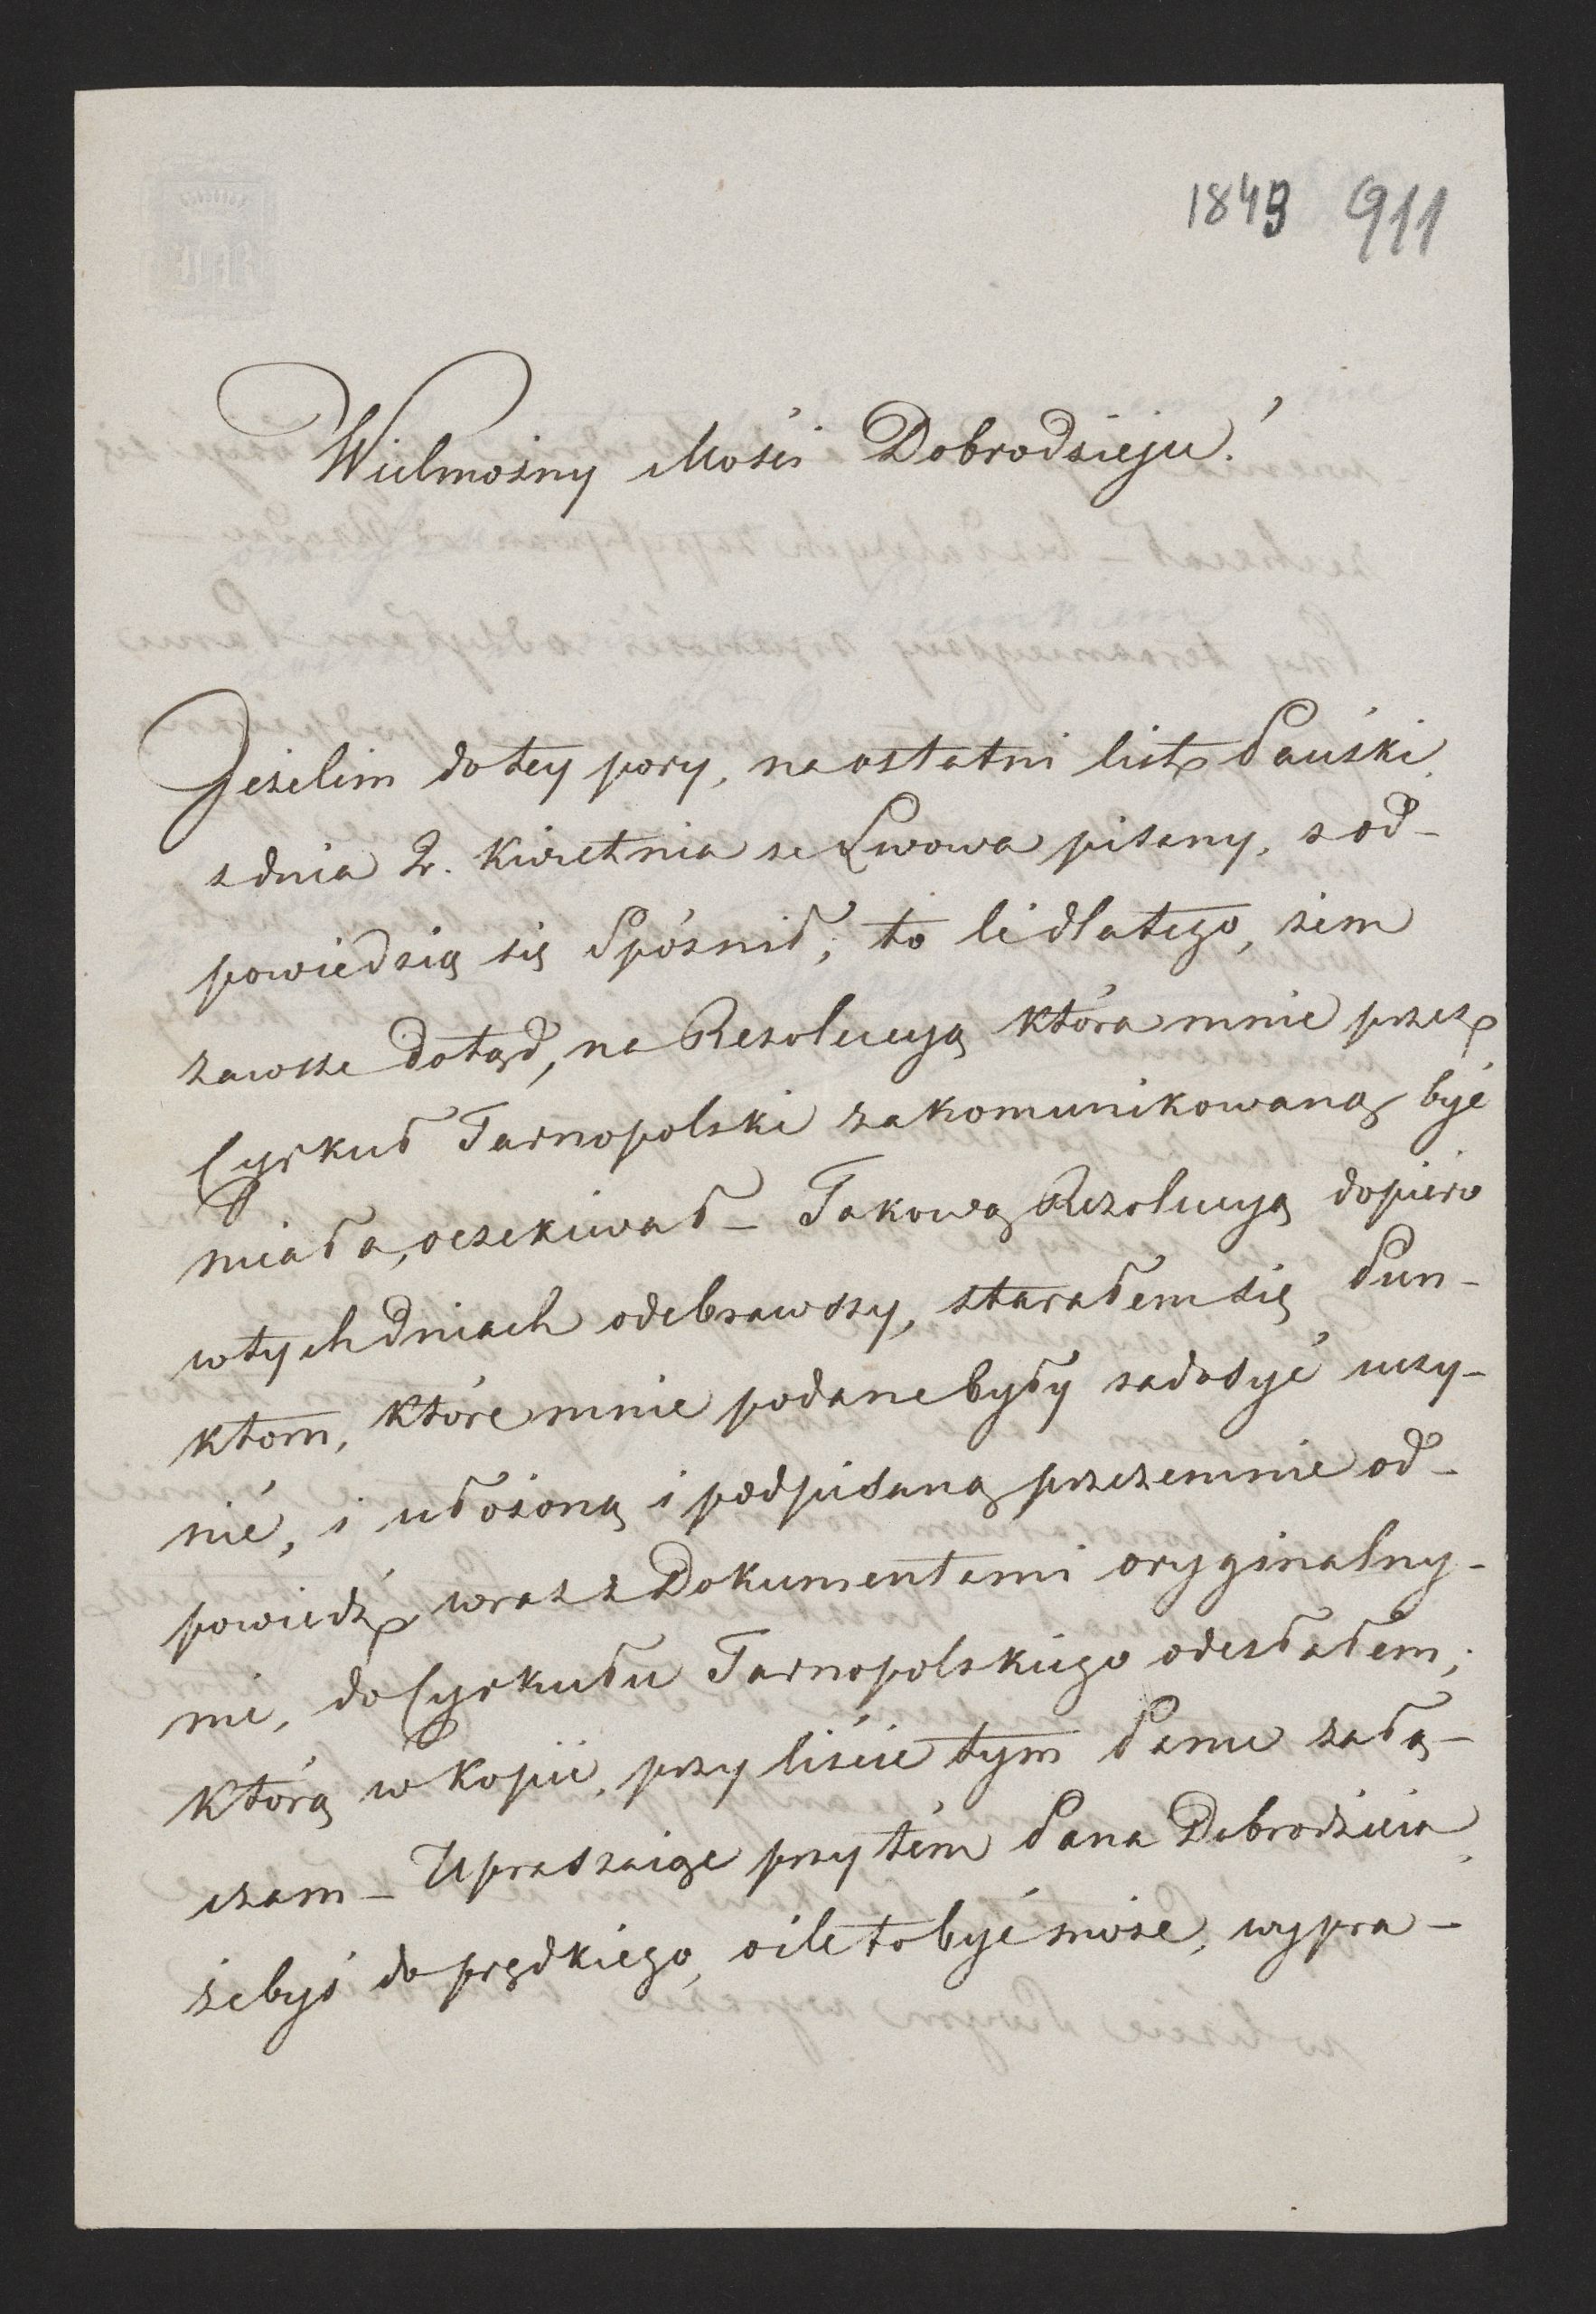 1843 911
Wielmożny Mości Dobrodzieju!
Jeżelim do tey pory, na ostatni list Pański
z dnia 2. Kwietnia ze Lwowa pisany, z od-
powiedzią się spóznił, to li dlatego, żem
zawsze dotąd, na Rezolucyą która mnie przez
Cyrkuł Tarnopolski zakomunikowaną być
miała, oczekiwał – Takową Rezolucyą dopiero
w tych dniach odebrawszy, starałem się Pun-
ktom, które mnie podane były zadosyć uczy-
nić, i ułożoną i podpisaną przezemnie od-
powiedź wraz z Dokumentami oryginalny-
mi, do Cyrkułu Tarnopolskiego odesłałem;
którą w kopii, przy liście tym Panu załą-
czam – Upraszaiąc przytém Pana Dobrodzieia,
żebyś do prędkiego, oile to być może, wypra-